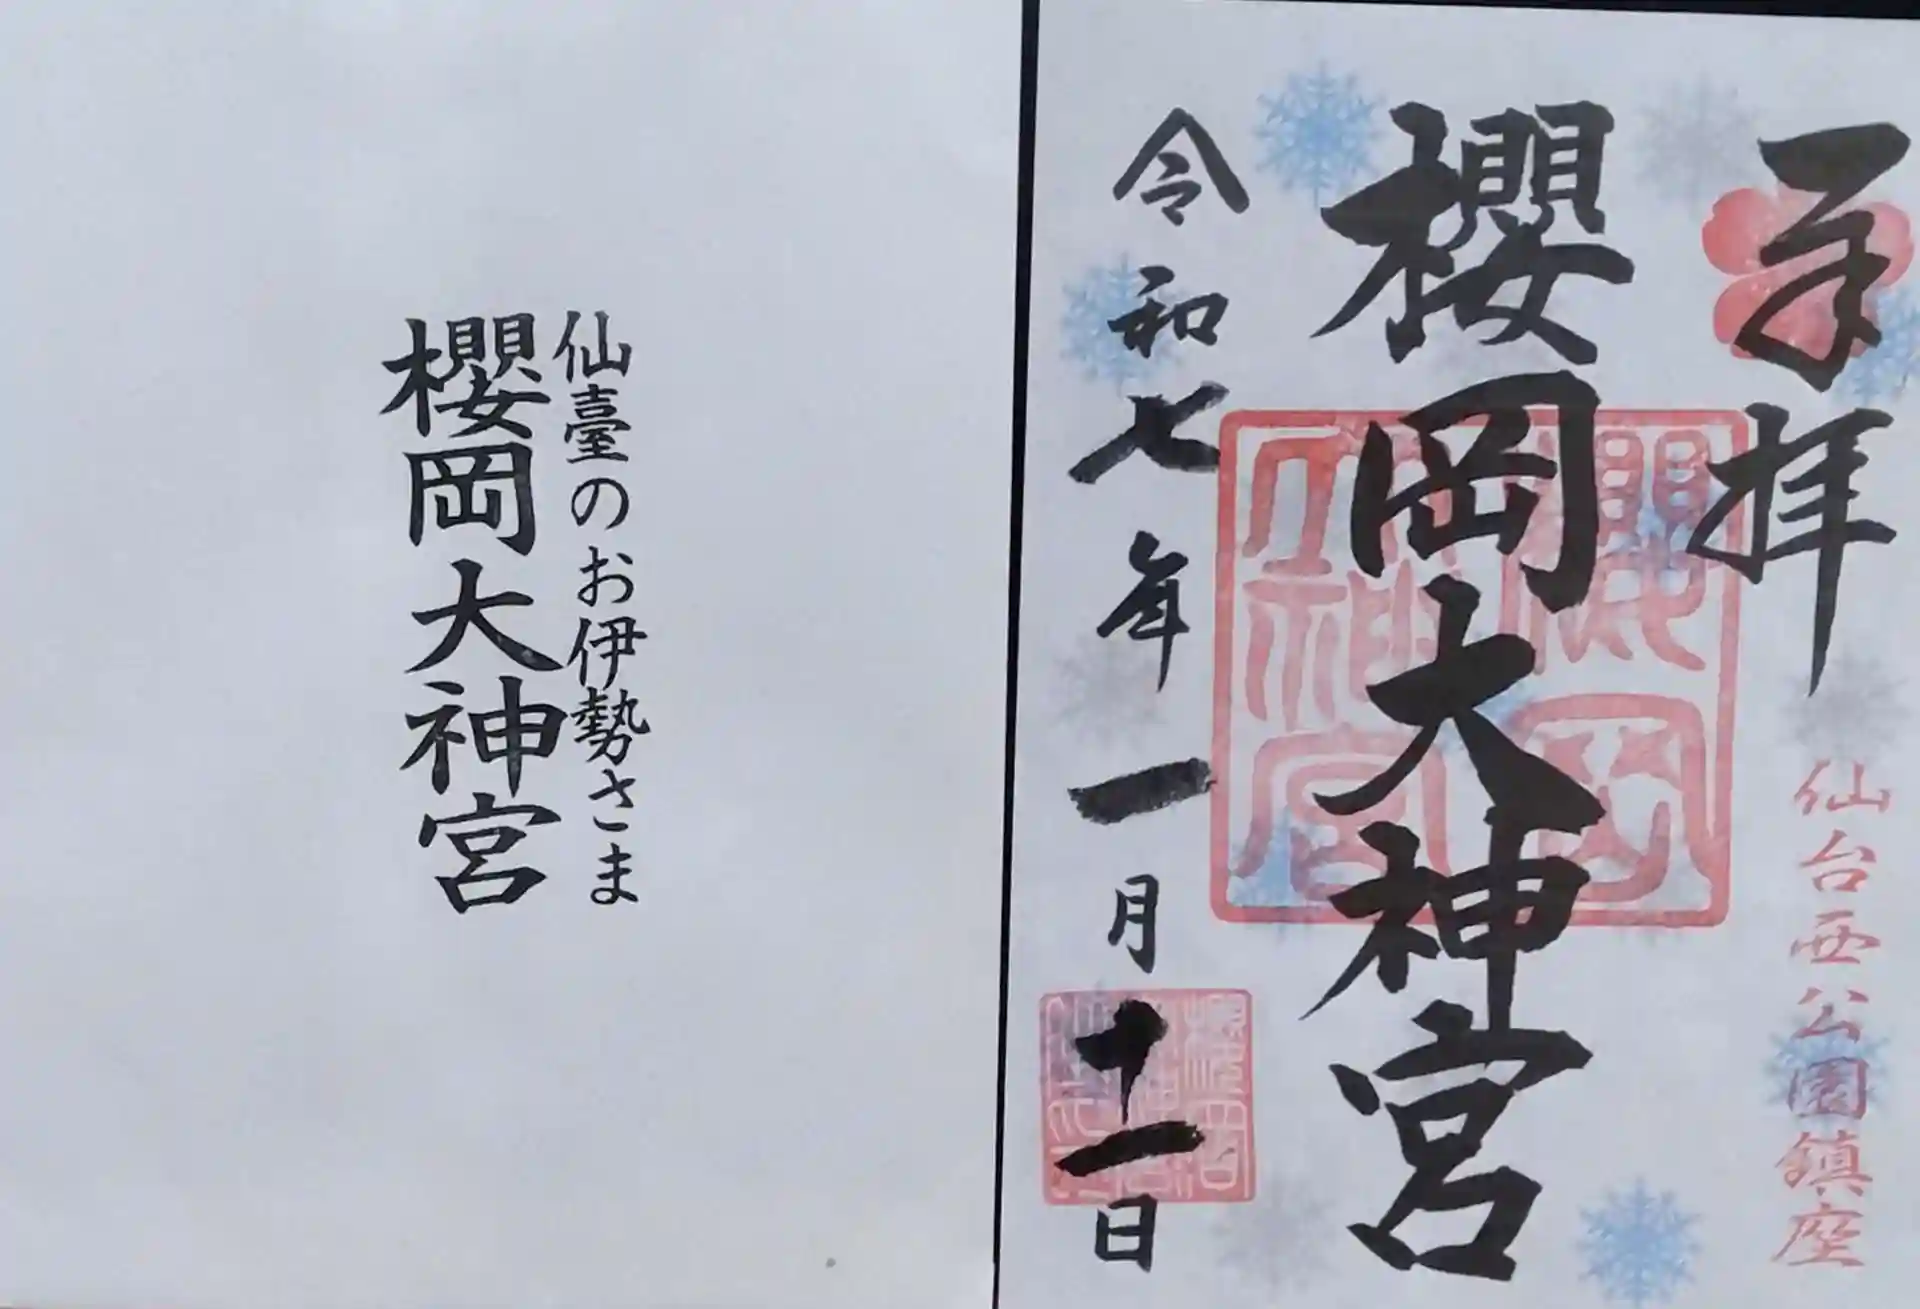 仙臺のお伊勢さま
櫻岡大神宮
奉拝
仙台西公園鎮座
櫻岡大神宮
令和七年一月十一日
櫻岡大神宮